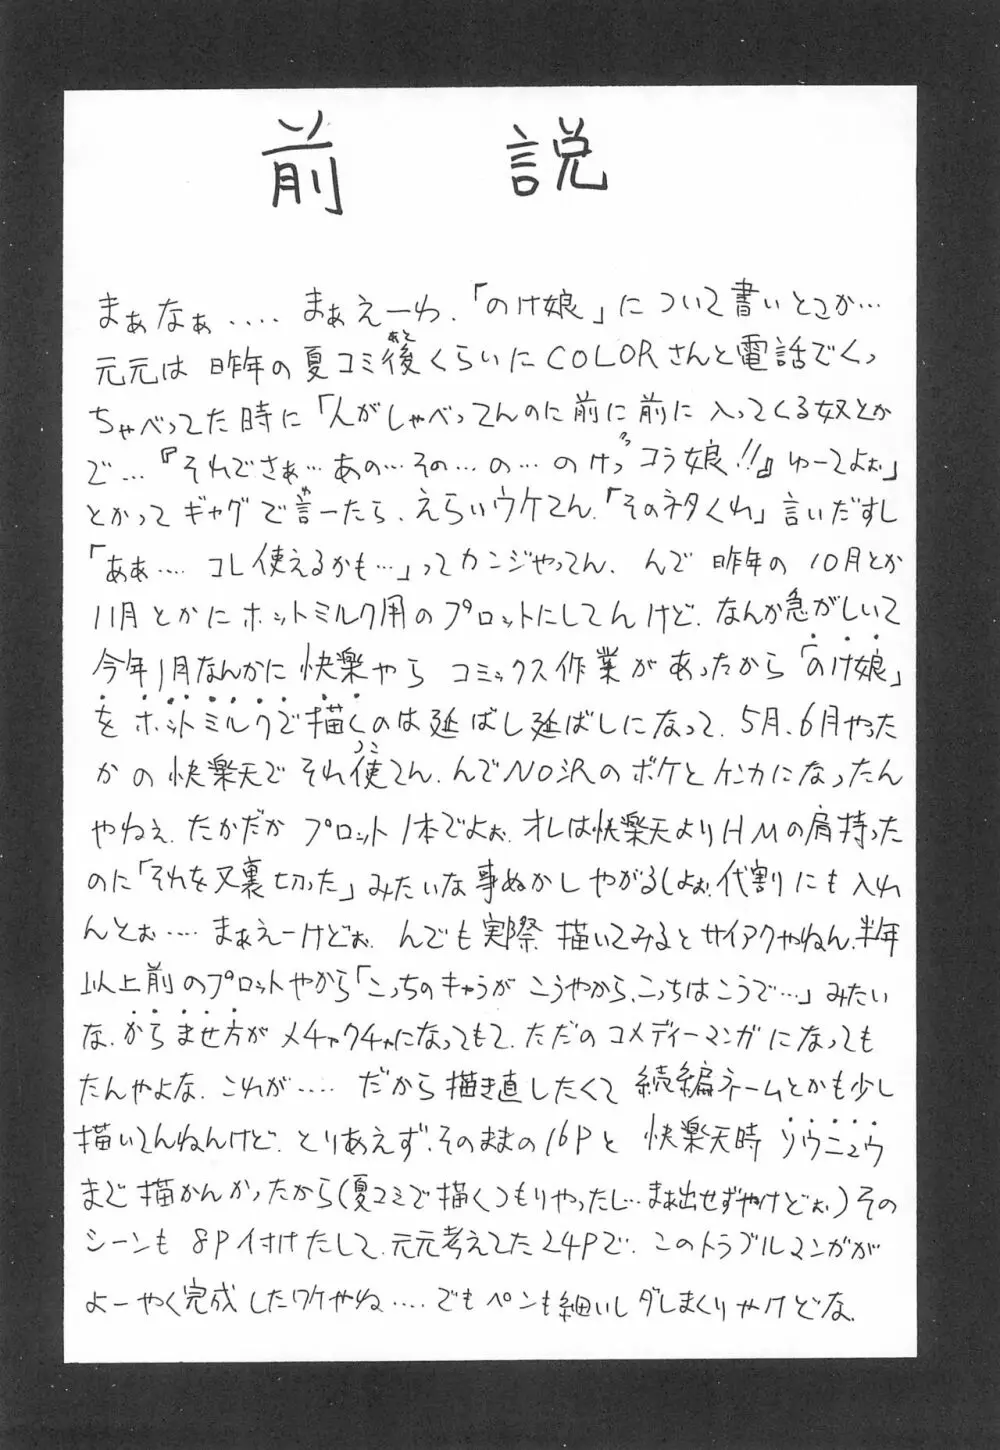 前説
まぁなぁ.... まぁえーわ.「のけ娘」について書いとこか…
元元は昨年の夏コミ後(あと)くらいにCOLORさんと電話でくっ
ちゃべってた時に「人がしゃべってんのに前に前に入ってくる奴とか
で…『それでさぁ…あの…その…の…のけっコラ娘!!』ゆーてよぉ」
とかってギャグで言(ゆ)ーたら、えらいウケてん.「そのネタくれ」言いだすし
「あぁ.... コレ使えるかも…」ってカンジやってん. んで昨年の10月とか
11月とかにホットミルク用のプロットにしてんけど、なんか急がしいて
今年1月なんかに快楽やらコミックス作業があったから「のけ娘」
をホットミルクで描くのは延ばし延ばしになって、5月、6月やった
かの快楽天でそれ使(つこ)てん.んでNO沢のボケとケンカになったん
やねぇ.たかだかプロット1本でよぉ.オレは快楽天よりHMの肩持った
のに「それを又裏切った」みたいな事ぬかしやがるしよぉ.代割にも入れ
んとぉ.... まぁえーけどぉ. んでも実際描いてみるとサイアクやねん.半年
以上前のプロットやから「こっちのキャラがこうやから、こっちはこうで…」みたい
な、からませ方がメチャクチャになってもて.ただのコメディーマンガになっても
たんやよな.これが.... だから描き直したくて続編ネームとかも少し
描いてんねんけど.とりあえず、そのままの16Pと快楽天時ソウニュウ
まで描かんかったから(夏コミで描くつもりやったし…まぁ出せずやけどぉ.)その
シーンも8P付けたして、元元考えてた24Pで、このトラブルマンガが
よーやく完成したワケやね....でもペンも細いしダしまくりやけどな.